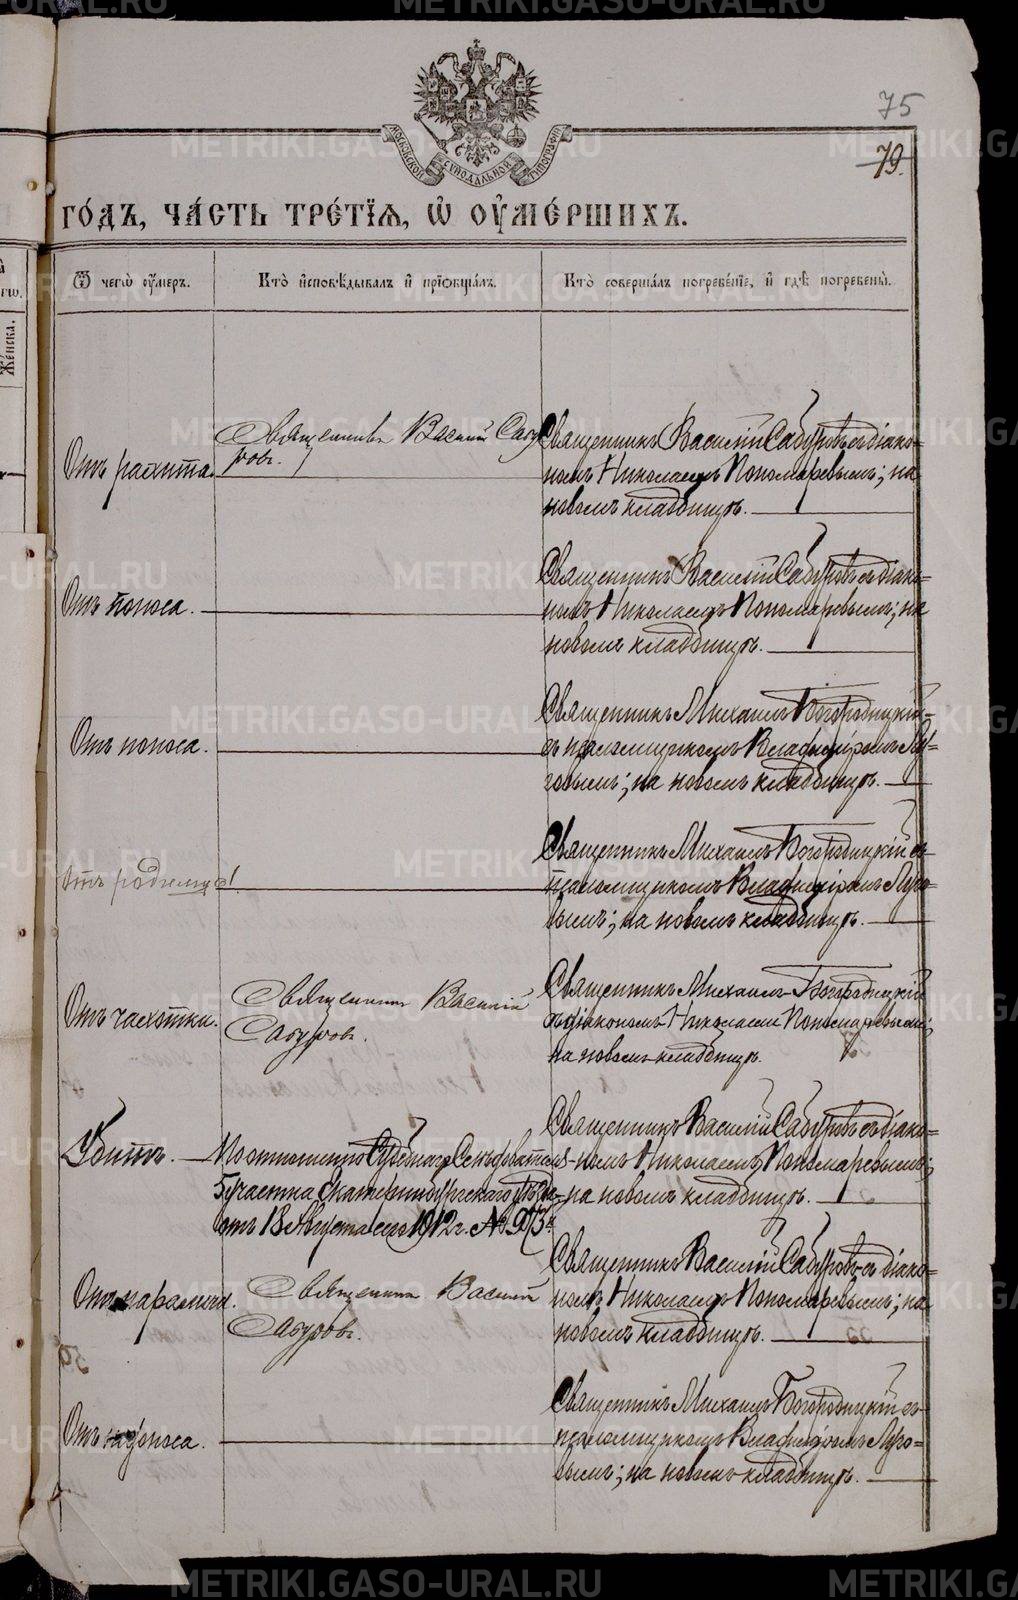 75
79.
МОСКОВСКОЙ СѴНОДАЛЬНОЙ ТИПОГРАФІИ
го́дъ, ча́сть тре́тїѧ, ѡ҆ ᲂу҆ме́ршихъ.
Ѿ чегѡ̀ ᲂу҆́меръ.
Кто̀ и҆сповѣ́дывалъ и҆ прїѡбща́лъ.
Кто̀ соверша́лъ погребе́нїе, и҆ гдѣ̀ погребены̀.
Же́нска.
Отъ рахита.
Священникъ Василій Сабу
ровъ.
Священникъ Василій Сабуровъ съ діако=
номъ Николаемъ Пономаревымъ; на
новомъ кладбищѣ.
Отъ поноса.
Священникъ Василій Сабуровъ съ діако=
номъ Николаемъ Пономаревымъ; на
новомъ кладбищѣ.
Отъ поноса.
Священникъ Михаилъ Богородицкій
съ псаломщикомъ Владиміромъ Лу=
говымъ; на новомъ кладбищѣ.
отъ родимца.
Священникъ Михаилъ Богородицкій съ
псаломщикомъ Владиміромъ Луго=
вымъ; на новомъ кладбищѣ.
Отъ чахотки.
Священникъ Василій
Сабуровъ.
Священникъ Михаилъ Богородицкій
съ діакономъ Николаемъ Пономаревымъ;
на новомъ кладбищѣ.
Убитъ.
По отношенію Судебнаго Слѣдователя
5 участка Екатеринбургскаго уѣзда
отъ 13 Августа сего 1912 г. №
Священникъ Василій Сабуровъ съ діако=
номъ Николаемъ Пономаревымъ;
на новомъ кладбищѣ.
Отъ паралича.
Священникъ Василій
Сабуровъ.
Священникъ Василій Сабуровъ съ діако=
номъ Николаемъ Пономаревымъ; на
новомъ кладбищѣ.
Отъ поноса.
Священникъ Михаилъ Богородицкій съ
псаломщикомъ Владиміромъ Луго=
вымъ; на новомъ кладбищѣ.
METRIKI.GASO-URAL.RU